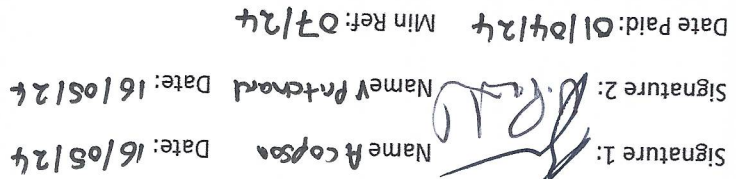 Signature 1: Name A Copson Date: 16/05/24
Signature 2: Name V Pritchard Date: 16/05/24
Date Paid: 01/04/24 Min Ref: 07/24